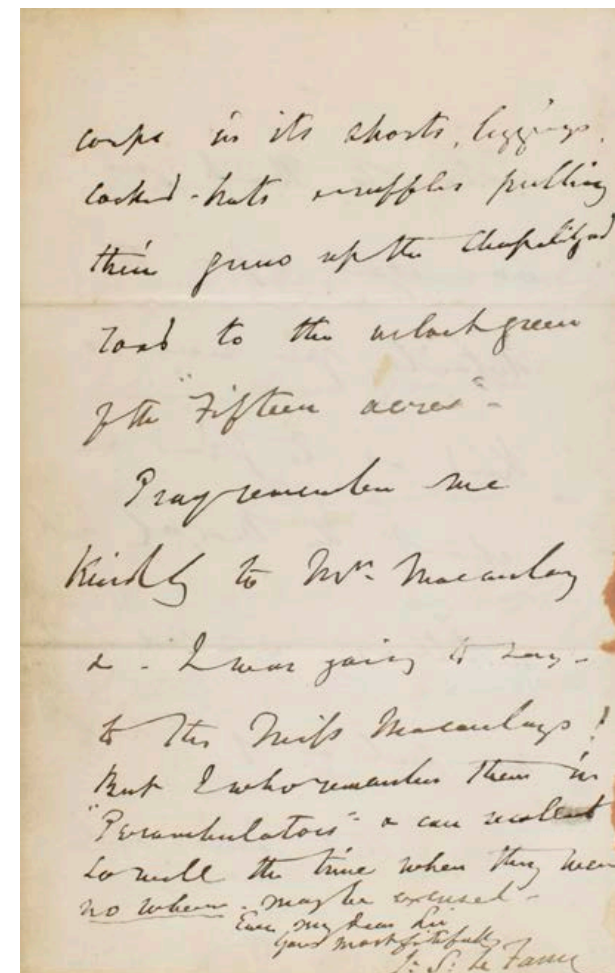 corps in its shorts, leggings,
cocked-hats & ruffles pulling
their guns up the Chapelizod
road to the velvet green
of the "Fifteen acres"-
Pray remember me
Kindly to Mrs. Macaulay
& - I was going to say -
to the Miss Macaulays!
But I who remember them in
"Perambulators" & can recollect
so well the time when they were
no where - may be excused -
Ever my dear Sir
yours most faithfully
J. S. Le Fanu